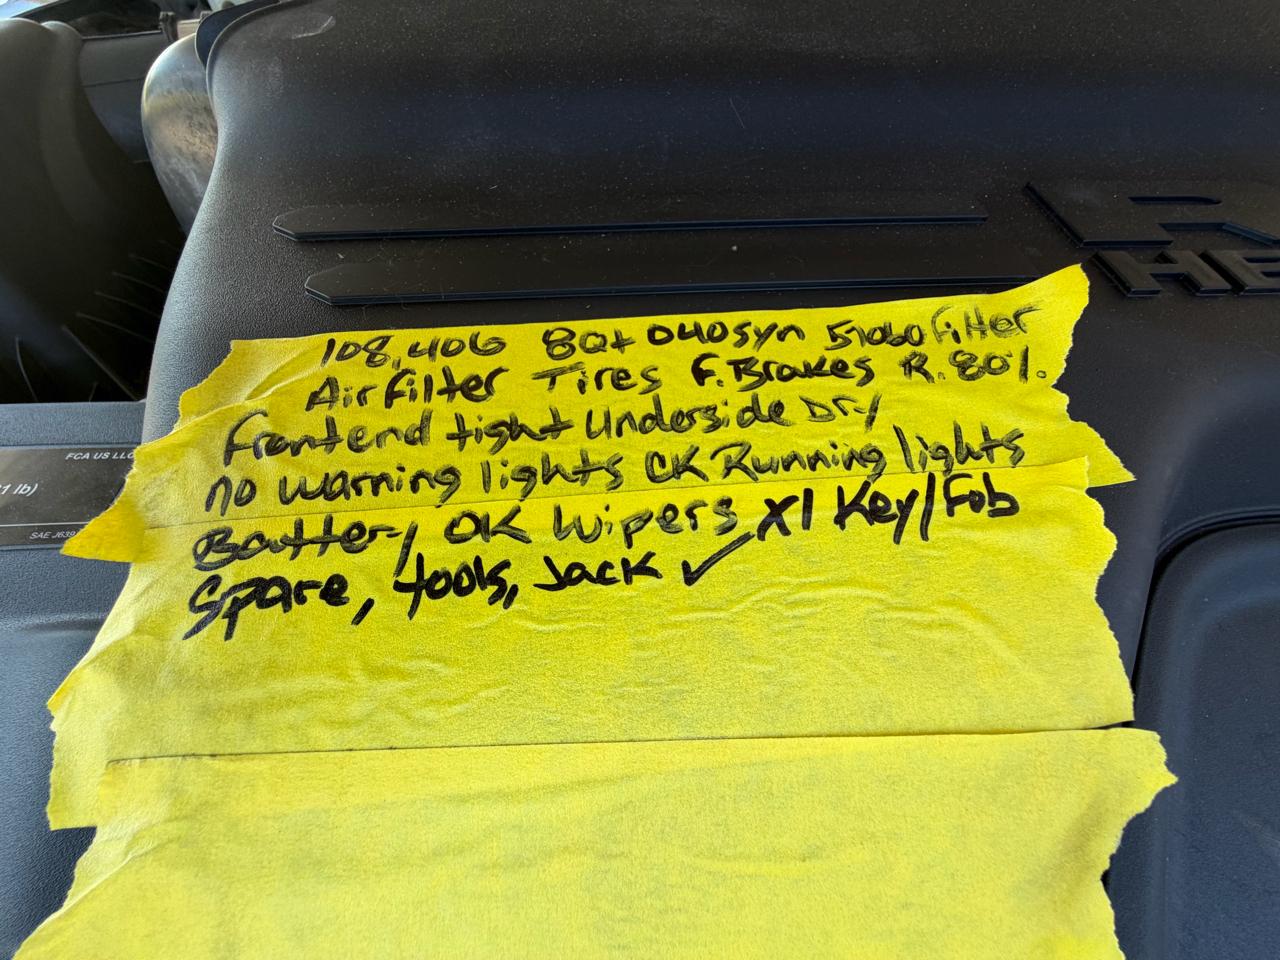 108,406 8Qt 040syn 51060 filter
Air filter Tires F.Brakes R.80%.
Frontend tight Underside Dry
no warning lights CK Running lights
Battery OK Wipers X1 Key/Fob
Spare, tools, Jack ✓
HE
FCA US LLC
1 lb)
SAE J639